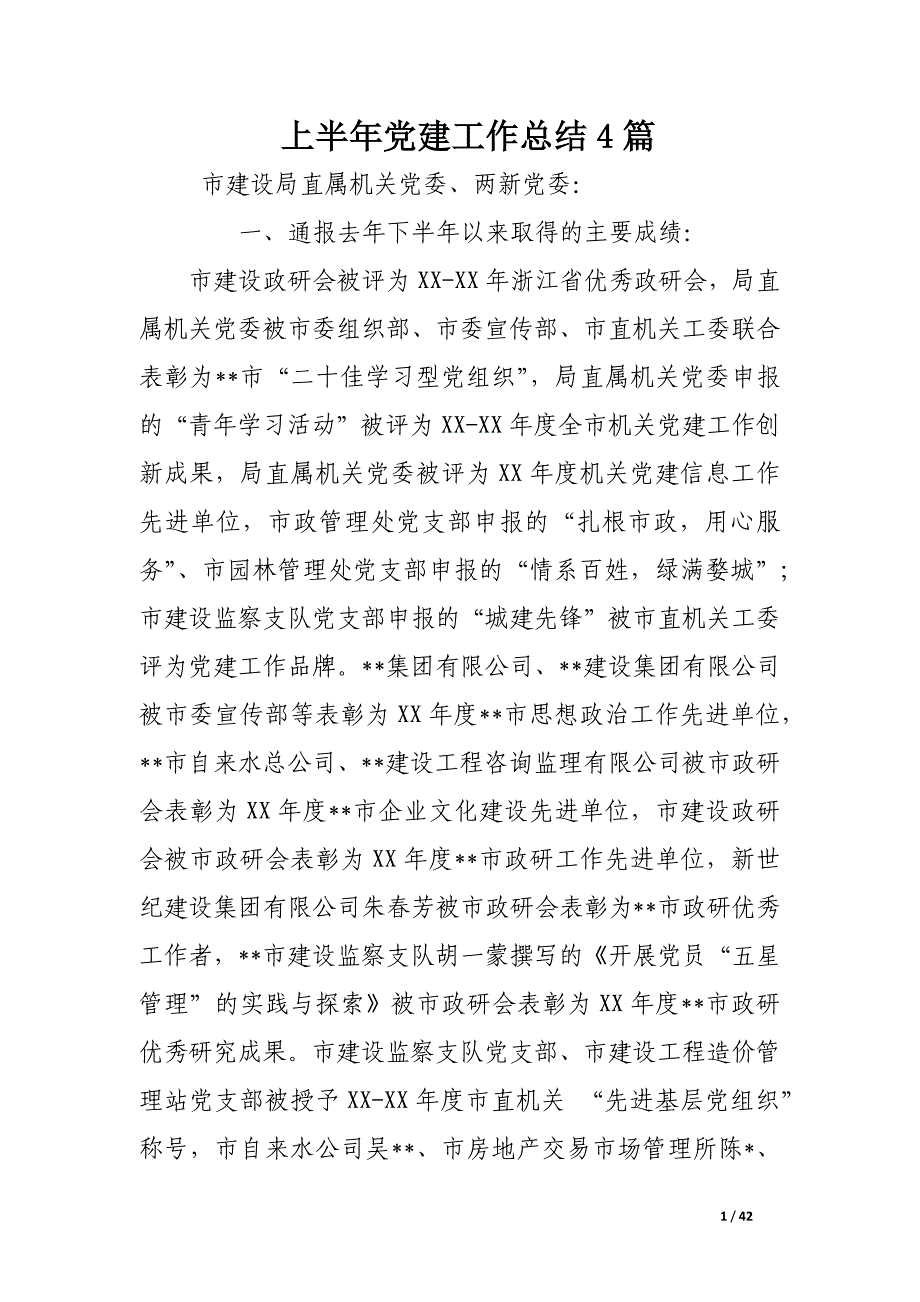 上半年党建工作总结 4 篇
市建设局直属机关党委、两新党委：
一、通报去年下半年以来取得的主要成绩：
市建设政研会被评为 XX-XX 年浙江省优秀政研会，局直
属机关党委被市委组织部、市委宣传部、市直机关工委联合
表彰为**市“二十佳学习型党组织”，局直属机关党委申报
的“青年学习活动”被评为 XX-XX 年度全市机关党建工作创
新成果，局直属机关党委被评为 XX 年度机关党建信息工作
先进单位，市政管理处党支部申报的“扎根市政，用心服
务”、市园林管理处党支部申报的“情系百姓，绿满婺城”；
市建设监察支队党支部申报的“城建先锋”被市直机关工委
评为党建工作品牌。**集团有限公司、**建设集团有限公司
被市委宣传部等表彰为 XX 年度**市思想政治工作先进单位，
**市自来水总公司、**建设工程咨询监理有限公司被市政研
会表彰为 XX 年度**市企业文化建设先进单位，市建设政研
会被市政研会表彰为 XX 年度**市政研工作先进单位，新世
纪建设集团有限公司朱春芳被市政研会表彰为**市政研优秀
工作者，**市建设监察支队胡一蒙撰写的《开展党员“五星
管理”的实践与探索》被市政研会表彰为 XX 年度**市政研
优秀研究成果。市建设监察支队党支部、市建设工程造价管
理站党支部被授予 XX-XX 年度市直机关 “先进基层党组织”
称号，市自来水公司吴**、市房地产交易市场管理所陈*、
1 / 42